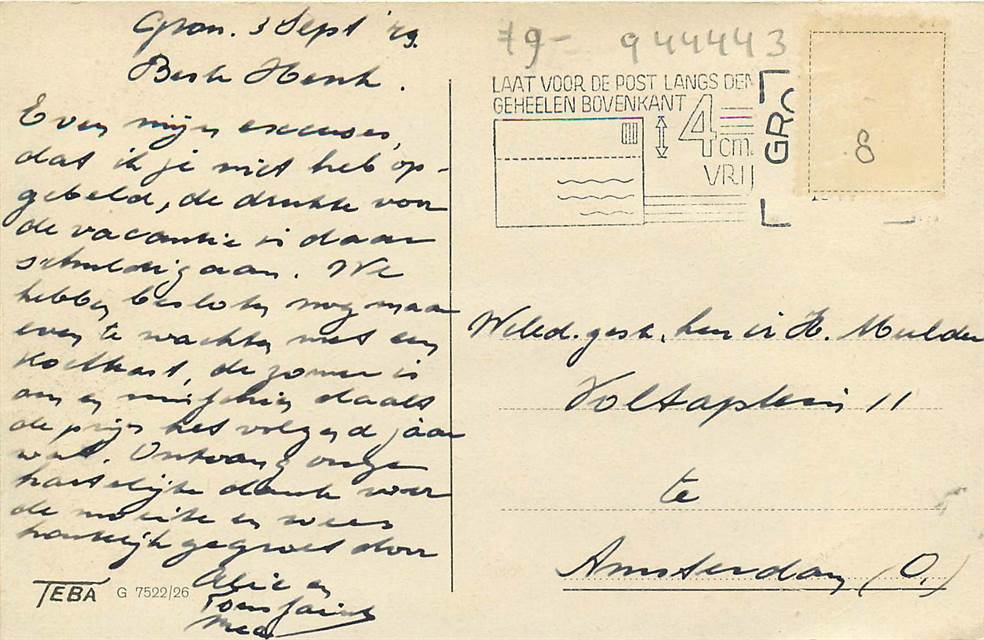 Gron. 3 Sept '49.
Beste Henk.
Even mijn excuses,
dat ik je niet heb op-
gebeld, de drukte voor
de vacantie is daar
schuldig aan. We
hebben besloten nog maar
even te wachten met een
koelkast, de zomer is
om en misschien daalt
de prijs het volgend jaar
wat. Ontvang onze
hartelijke dank voor
de moeite en wees
hartelijk gegroet door
Alie en
TEBA G 7522/26
79- 944443
LAAT VOOR DE POST LANGS DEN
GEHEELEN BOVENKANT 4
cm.
VRIJ
GRO
8
Weled. gestr. heer ir H. Mulder
Voltaplein 11
te
Amsterdam (O.)